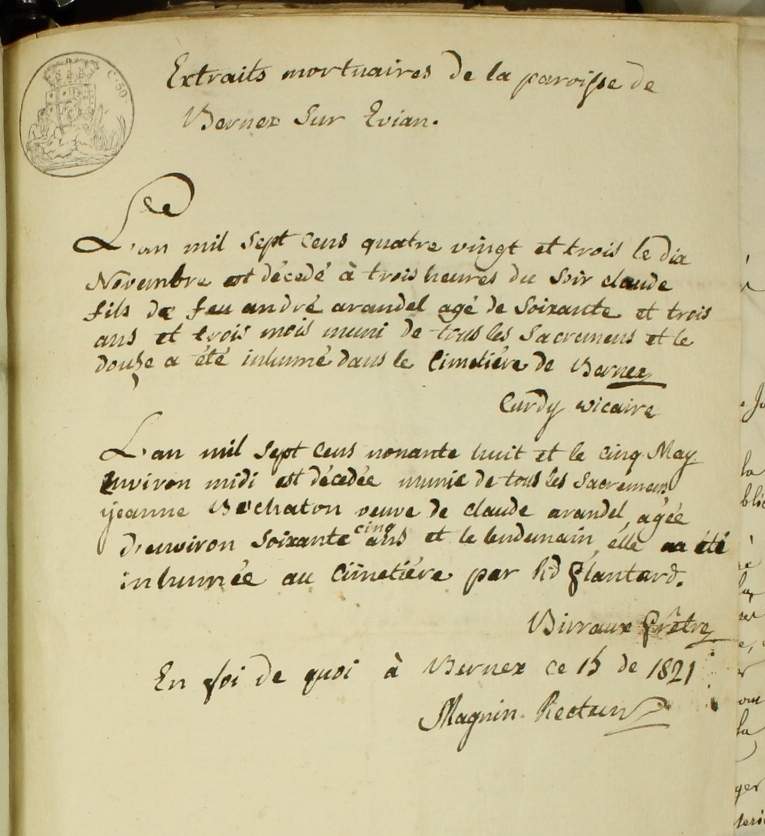 C. 50
Extraits mortuaires de la paroisse de
Bernex sur Evian.
L'an mil sept cens quatre vingt et trois le dix
Novembre est décédé à trois heures du soir claude
fils de feu andré arandel agé de soixante et trois
ans et trois mois muni de tous les sacremens et le
douze a été inhumé dans le cimetière de Bernex
Curdy vicaire
L'an mil sept cens nonante huit et le cinq May
environ midi est décédée munie de tous les sacremens
jeanne Bochaton veuve de claude arandel agée
d'environ soixante cinq ans et le lendemain, élle a été
inhumée au cimetiére par Rd Plantard.
Birraux Prêtre
En foi de quoi à Bernex ce 15 de 1821
Magnin Recteur